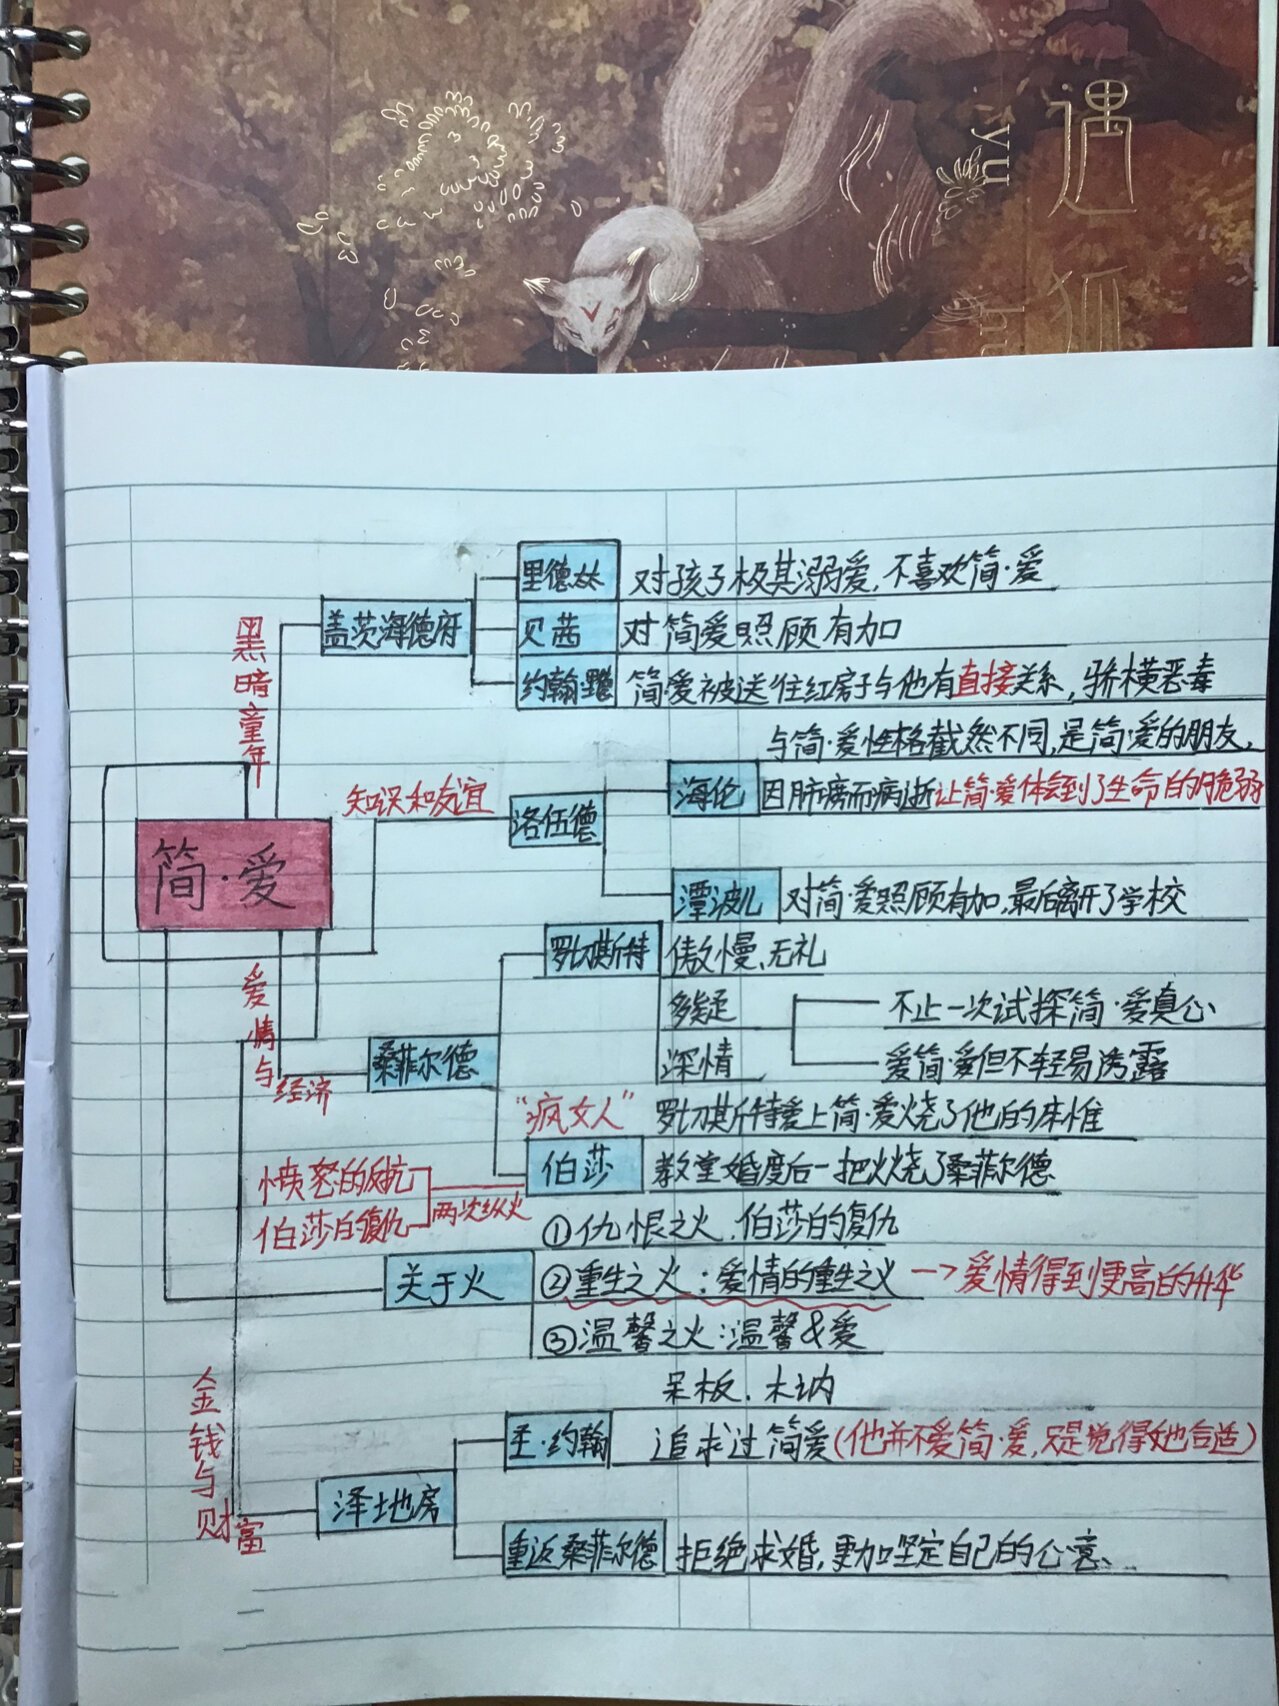 遇
yu
狐
里德太太 对孩子极其溺爱,不喜欢简·爱
盖茨海德府
贝茜 对简爱照顾有加
约翰·里德 简·爱被送往红房子与他有直接关系,骄横恶毒
黑暗童年
与简·爱性格截然不同,是简·爱的朋友,
海伦 因肺痨而病逝让简·爱体会到了生命的脆弱
知识和友谊
洛伍德
简·爱
潭波儿 对简·爱照顾有加,最后离开了学校
罗切斯特 傲慢、无礼
多疑 不止一次试探简·爱真心
深情 爱简·爱但不轻易透露
爱情与经济
桑菲尔德
“疯女人” 罗切斯特爱上简·爱烧了他的床帷
伯莎 教堂婚度后一把火烧了桑菲尔德
愤怒的反抗
伯莎的复仇
两次纵火
①仇恨之火.伯莎的复仇
关于火 ②重生之火:爱情的重生之义 →爱情得到更高的升华
③温馨之火:温馨&爱
金钱与财富
呆板.木讷
圣·约翰 追求过简爱(他并不爱简·爱,只是觉得她合适)
泽地房
重返桑菲尔德 拒绝求婚,更加坚定自己的心意、